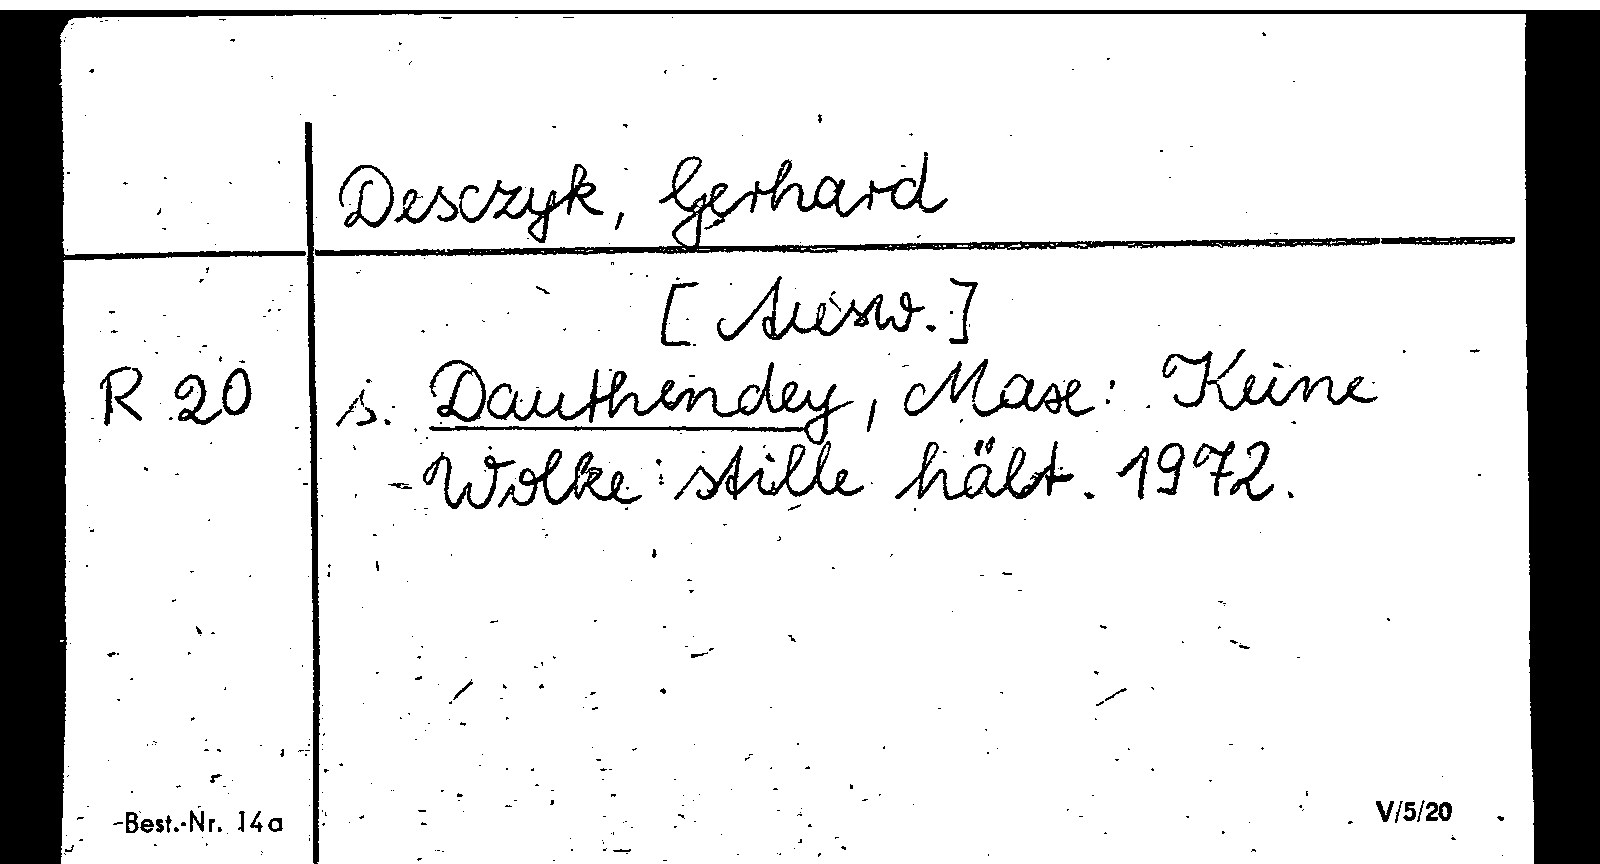 Desczyk, Gerhard
[Ausw.]
R 20 s. Dauthendey, Max: Keine
Wolke stille hält. 1972.
Best.-Nr. 14a V/5/20